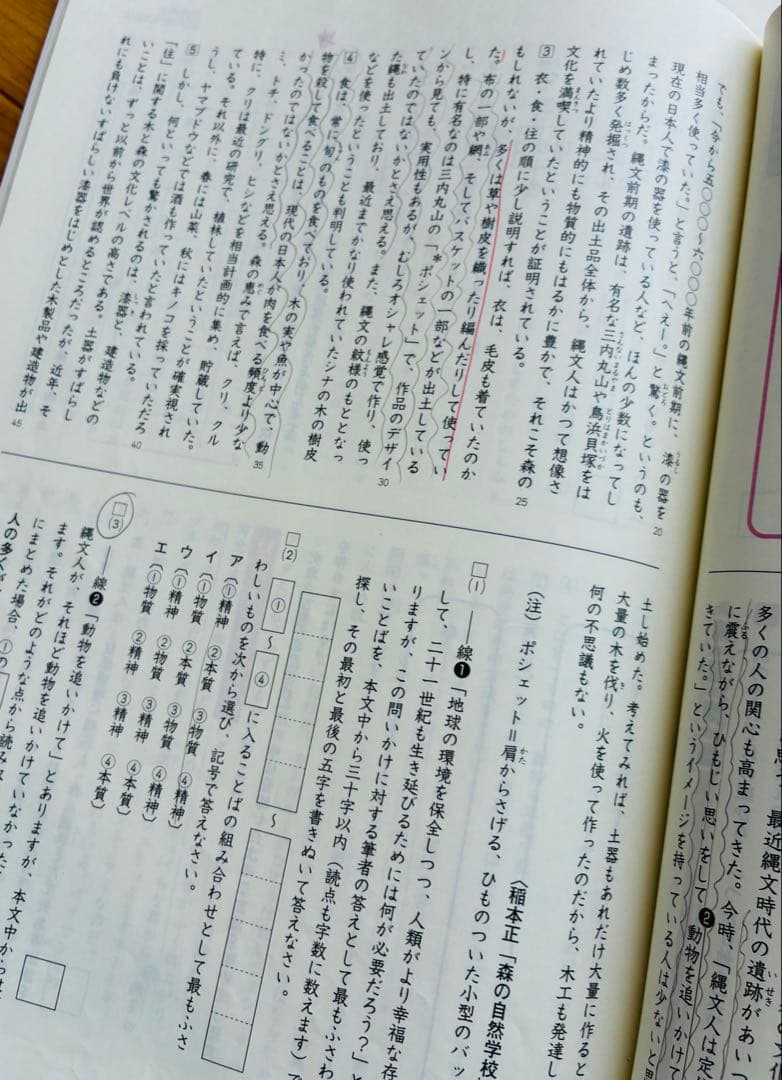 最近縄文時代の遺跡があいつ
多くの人の関心も高まってきた。今時、「縄文人は定
に震えながら、ひもじい思いをして❷動物を追いかけて
きていた。」というイメージを持っている人は少ないと思
でも、「今から五〇〇〇〜六〇〇〇年前の縄文前期に、漆の器を
相当多く使っていた。」と言うと、「へえー。」と驚く。というのも、
現在の日本人で漆の器を使っている人など、ほんの少数になってし
まったからだ。縄文前期の遺跡は、有名な三内丸山や鳥浜貝塚をは
じめ数多く発掘され、その出土品全体から、縄文人はかつて想像さ
れていたより精神的にも物質的にもはるかに豊かで、それこそ森の
文化を満喫していたということが証明されている。
3 衣・食・住の順に少し説明すれば、衣は、毛皮も着ていたのか
もしれないが、多くは草や樹皮を織ったり編んだりして使ってい
た。布の一部や網、そしてバスケットの一部などが出土している
し、特に有名なのは三内丸山の「＊ポシェット」で、作品のデザイ
ンから見ても、実用性もあるが、むしろオシャレ感覚で作り、使っ
ていたのではないかとさえ思える。また、縄文の紋様のもととなっ
た縄も出土しており、最近までかなり使われていたシナの木の樹皮
などを使ったということも判明している。
4 食は、常に旬のものを食べており、木の実や魚が中心で、動
物を殺して食べることは、現代の日本人が肉を食べる頻度より少な
かったのではないかとさえ思える。森の恵みで言えば、クリ、クル
ミ、トチ、ドングリ、ヒシなどを相当計画的に集め、貯蔵していた。
特に、クリは最近の研究で、植林していたということが確実視され
ている。それ以外に、春には山菜、秋にはキノコを採っていただろ
うし、ヤマブドウなどでは酒も作っていたと言われている。
5 しかし、何といっても驚かされるのは、漆器と、建造物などの
「住」に関する木と森の文化レベルの高さである。土器がすばらし
いことは、ずっと以前から世界が認めるところだったが、近年、そ
れにも負けないすばらしい漆器をはじめとした木製品や建造物が出
20
25
30
35
40
45
土し始めた。考えてみれば、土器もあれだけ大量に作ると
大量の木を伐り、火を使って作ったのだから、木工も発達し
何の不思議もない。
〈稲本正「森の自然学校
（注） ポシェット＝肩からさげる、ひものついた小型のバッ
(1) ――線❶「地球の環境を保全しつつ、人類がより幸福な存
して、二十一世紀も生き延びるためには何が必要だろう？」と
りますが、この問いかけに対する筆者の答えとして最もふさわ
いことばを、本文中から三十字以内（読点も字数に数えます）で
探し、その最初と最後の五字を書きぬいて答えなさい。
〜
(2) ①〜④に入ることばの組み合わせとして最もふさ
わしいものを次から選び、記号で答えなさい。
ア〔①精神 ②本質 ③物質 ④精神〕
イ〔①物質 ②本質 ③精神 ④精神〕
ウ〔①精神 ②物質 ③精神 ④本質〕
エ〔①物質 ②精神 ③精神 ④本質〕
(3) ――線❷「動物を追いかけて」とありますが、本文中からは
縄文人が、それほど動物を追いかけていなかった
ます。それがどのような点から読み
にまとめた場合、①の
人の多くが、